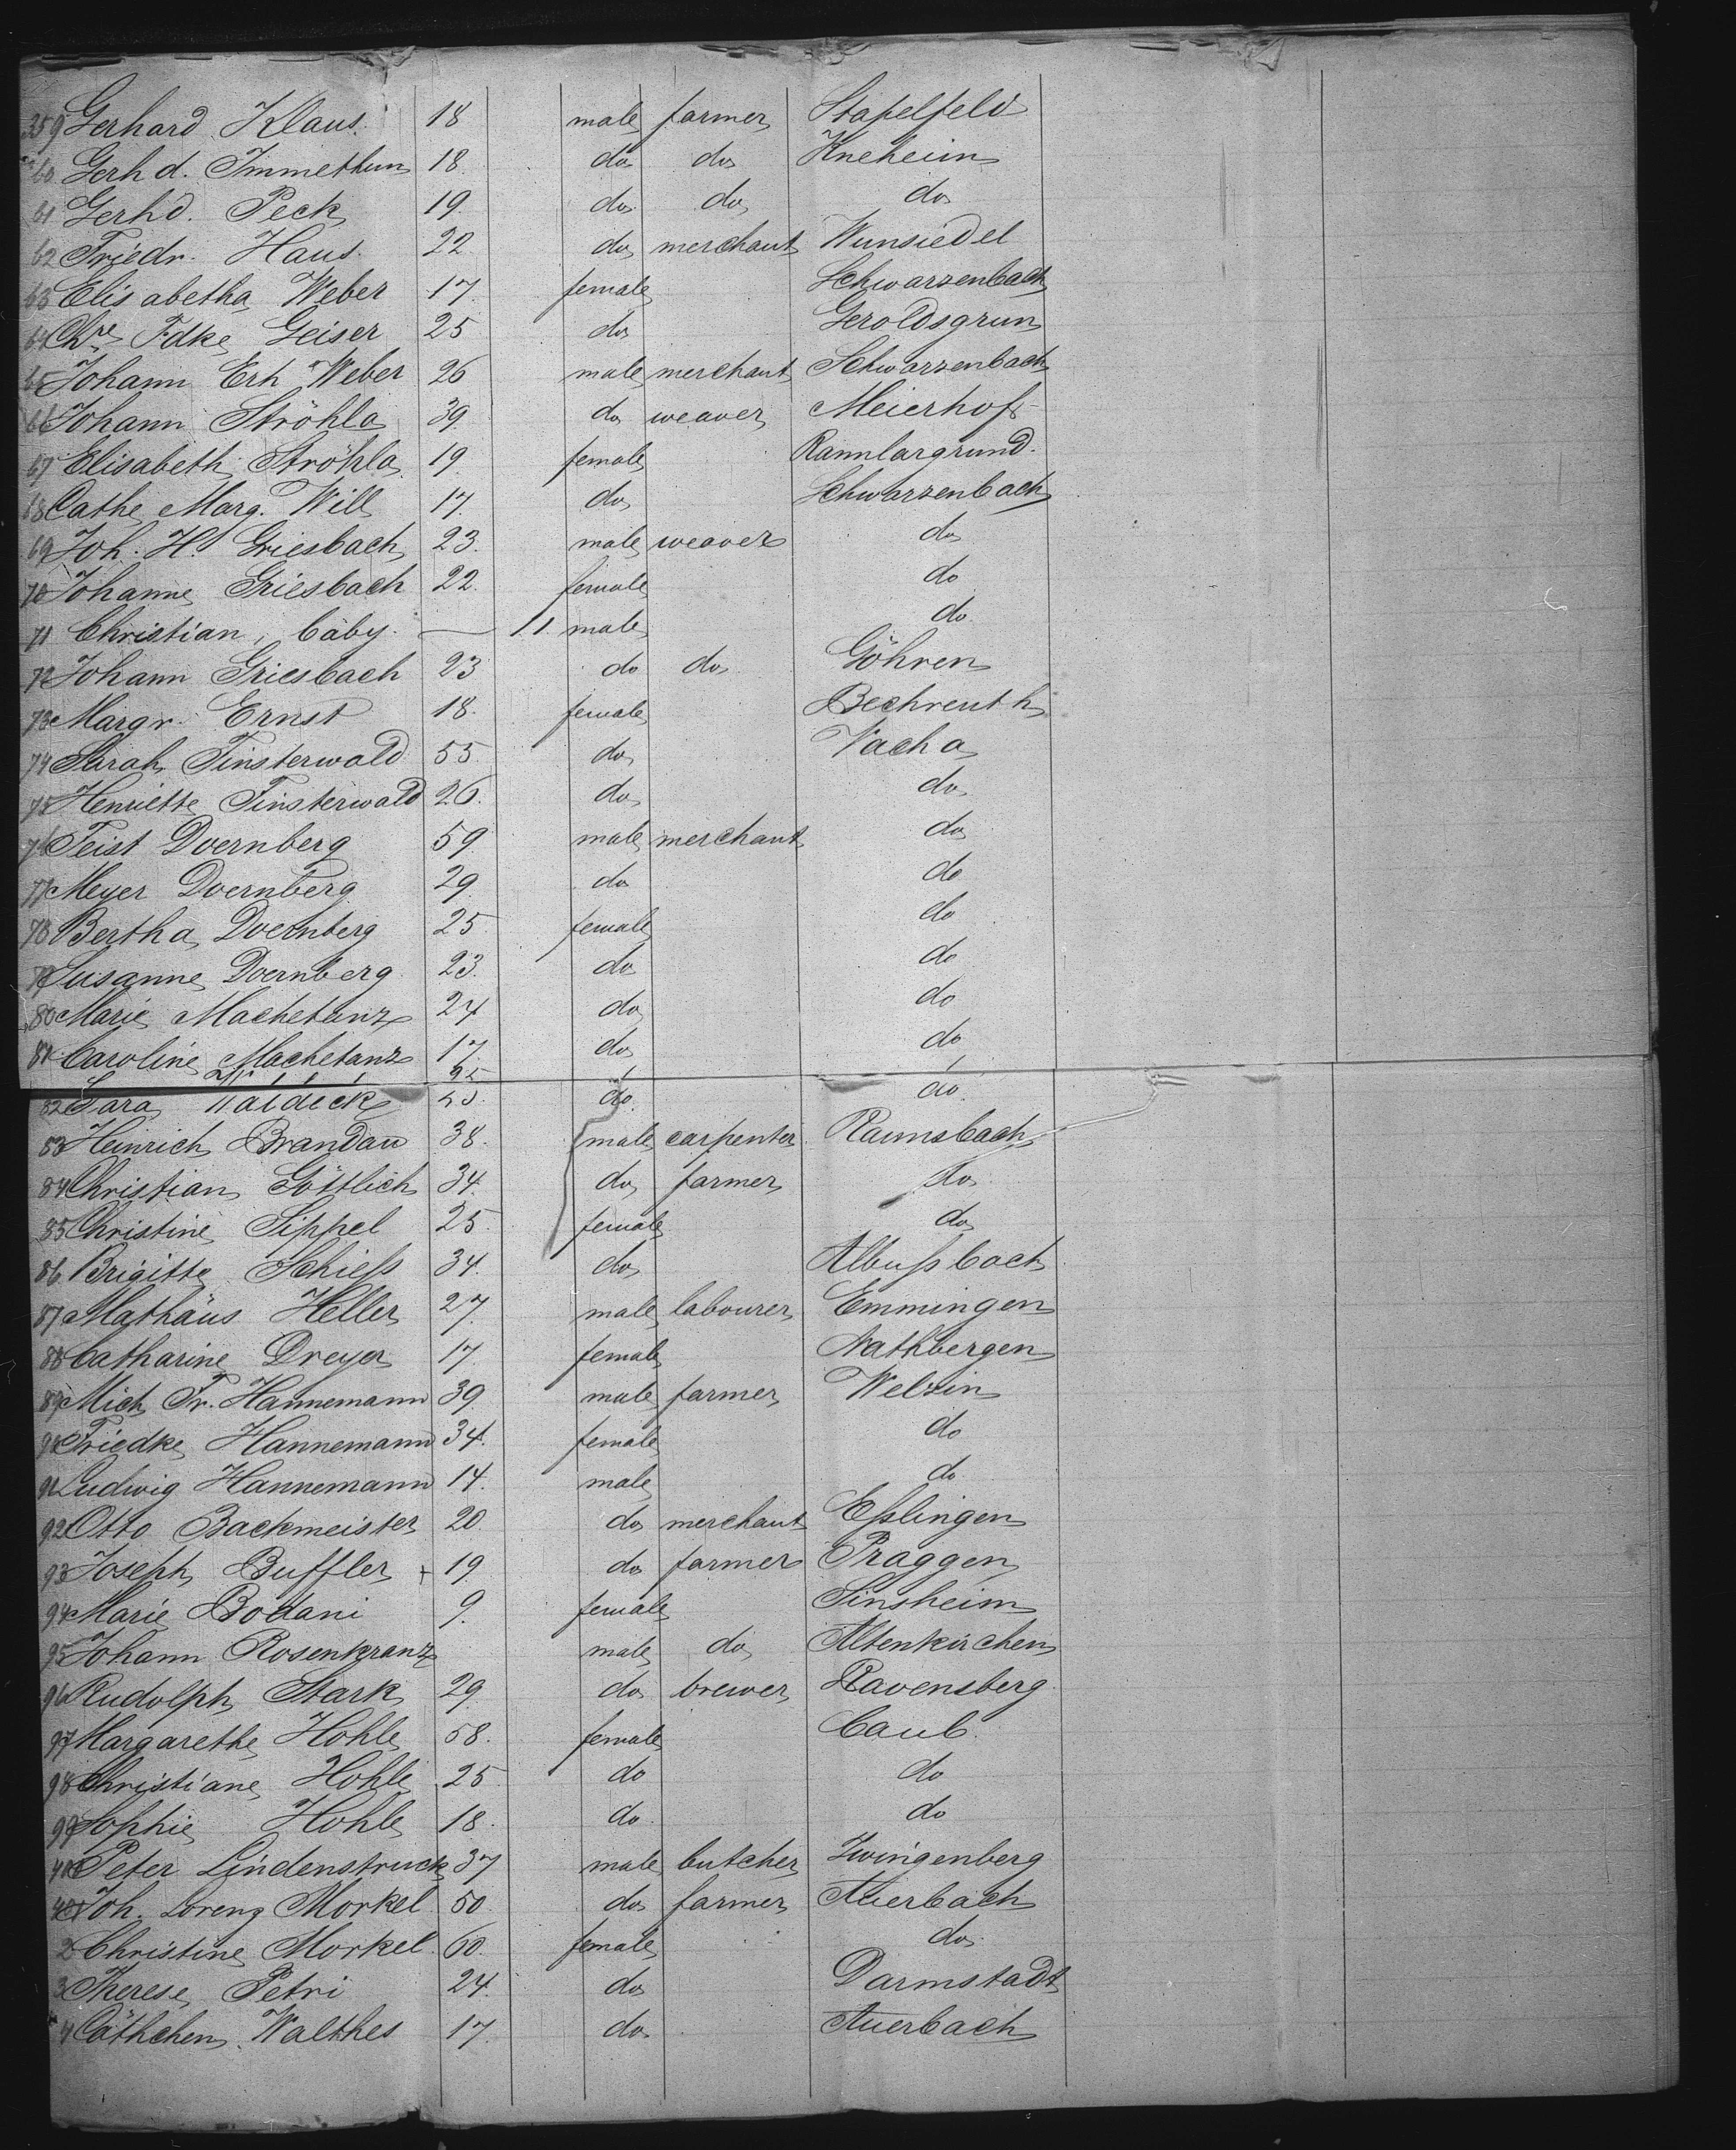 359 Gerhard Klaus. 18 male farmer Stapelfeld
60 Gerhd. Immethun 18. do do Kneheim
61 Gerhd. Peck 19. do do do
62 Friedr. Haus. 22 do merchant Wunsiedel
63 Elisabetha Weber 17. female Schwarzenbach
64 Chre Fdke Geiser 25 do Geroldsgrun
65 Johann Erh Weber 26 male merchant Schwarzenbach
66 Johann Ströhla 39. do weaver Meierhof
67 Elisabeth Ströhla 19. female Rannlargrund.
68 Cathe Marg. Will 17. do Schwarzenbach
69 Joh. H. Griesbach 23. male weaver do
70 Johanne Griesbach 22. female do
71 Christian, baby. — 11. male do
72 Johann Griesbach 23 do do Göhren
73 Margr. Ernst 18. female Bechreuth
74 Sarah Finsterwald 55. do Vacha
75 Henriette Finsterwald 26. do do
76 Feist Doernberg 59 male merchant do
77 Meyer Doernberg 29 do do
78 Bertha Doernberg 25 female do
79 Susanne Doernberg 23. do do
80 Marie Machetanz 24 do do
81 Caroline Machetanz 17. do do
82 Sara Waldeck 25 do. do.
83 Heinrich Brandau 38. male carpenter Raunsbach
84 Christian Göttlich 34. do farmer do
85 Christine Sippel 25 female do
86 Brigitte Schiess 34. do Albussbach
87 Mathäus Heller 27. male labourer Emmingen
88 Catharine Dreyer 17. female Nathbergen
89 Mich Fr. Hannemann 39. male farmer Welzin
90 Friedke Hannemann 34. female do
91 Ludwig Hannemann 14. male do
92 Otto Backmeister 20. do merchant Esslingen
93 Joseph Buffler + 19. do farmer Praggen
94 Marie Bodani 9. female Sinsheim
95 Johann Rosenkranz male do Altenkirchen
96 Rudolph Stark 29. do brewer Ravensberg
97 Margarethe Hohle 58. female Caub.
98 Christiane Hohle 25 do do
99 Sophie Hohle 18. do do
400 Peter Lindenstruck 37 male butcher Zwingenberg
401 Joh. Lorenz Morkel 50. do farmer Auerbach
2 Christine Morkel. 60. female do
3 Therese Petri 24. do Darmstadt
4 Cäthchen Walther 17. do Auerbach